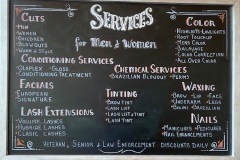 Services
for Men & Women
Cuts
- Men
- Women
- Children
- Blowouts
- Wash & Style
Color
- Highlights-Lowlights
- Root Touchup
- Toner Color
- Balayage
- Color Correction
- All Over Color
Conditioning Services
- Olaplex - Gloss
- Conditioning Treatment
Chemical Services
- Brazilian Blowout - Perms
Facials
- European
- Signature
Tinting
- Brow Tint
- Lash Tint
- Lash Lift & Tint
Waxing
- Brow - Lip - Face
- Underarm - Legs
- Bikini - Brazilian
Lash Extensions
- Volume Lashes
- Hybrid Lashes
- Classic Lashes
Nails
- Manicures - Pedicures
- Nail Enhancements
Veteran, Senior & Law Enforcement Discounts Daily